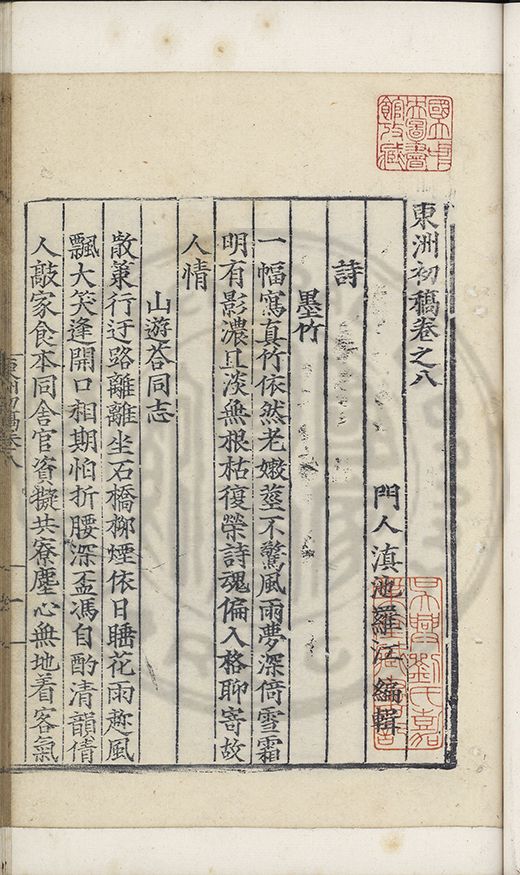 國立中
央圖書
館收藏
東洲初稿卷之八
門人滇池羅江編輯
吳興劉氏嘉
業堂藏書印
詩
墨竹
一幅寫真竹依然老嫩莖不驚風雨夢深倚雪霜
明有影濃且淡無根枯復榮詩魂偏入格聊寄故
人情
山游荅同志
散兼行迂路離離坐石橋柳煙依日睡花雨趂風
飄大笑逢開口相期怕折腰深盃馮自酌清韻倩
人敲家食本同舍官資擬共寮塵心無地着客氣
東洲初稿卷八
一